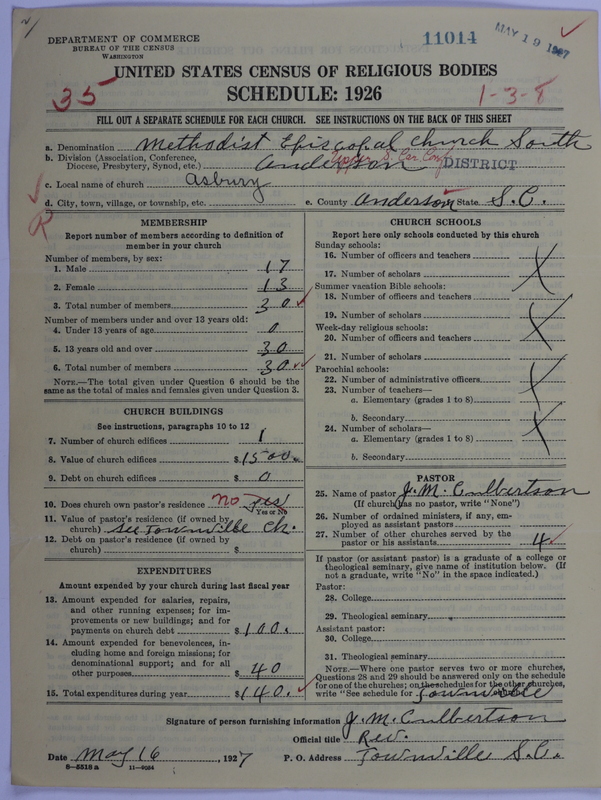 DEPARTMENT OF COMMERCE
BUREAU OF THE CENSUS
WASHINGTON
11014
MAY 19 1927
UNITED STATES CENSUS OF RELIGIOUS BODIES
SCHEDULE: 1926
35
1-3-8
FILL OUT A SEPARATE SCHEDULE FOR EACH CHURCH. SEE INSTRUCTIONS ON THE BACK OF THIS SHEET
a. Denomination Methodist Episcopal Church South
b. Division (Association, Conference, Diocese, Presbytery, Synod, etc.) Anderson Upper S. Car. Conf. DISTRICT
c. Local name of church Asbury
d. City, town, village, or township, etc. e. County Anderson State S.C.
R
MEMBERSHIP
Report number of members according to definition of member in your church
Number of members, by sex:
1. Male 17
2. Female 13
3. Total number of members 30
Number of members under and over 13 years old:
4. Under 13 years of age 0
5. 13 years old and over 30
6. Total number of members 30
NOTE.—The total given under Question 6 should be the same as the total of males and females given under Question 3.
CHURCH BUILDINGS
See instructions, paragraphs 10 to 12
7. Number of church edifices 1
8. Value of church edifices $1500.
9. Debt on church edifices $ 0
10. Does church own pastor's residence no yes
Yes or No
11. Value of pastor's residence (if owned by church) See Townville Ch.
12. Debt on pastor's residence (if owned by church) $
EXPENDITURES
Amount expended by your church during last fiscal year
13. Amount expended for salaries, repairs, and other running expenses; for improvements or new buildings; and for payments on church debt $ 100.
14. Amount expended for benevolences, including home and foreign missions; for denominational support; and for all other purposes $ 40
15. Total expenditures during year $ 140.
CHURCH SCHOOLS
Report here only schools conducted by this church
Sunday schools:
16. Number of officers and teachers
17. Number of scholars
Summer vacation Bible schools:
18. Number of officers and teachers
19. Number of scholars
Week-day religious schools:
20. Number of officers and teachers
21. Number of scholars
Parochial schools:
22. Number of administrative officers
23. Number of teachers—
a. Elementary (grades 1 to 8)
b. Secondary
24. Number of scholars—
a. Elementary (grades 1 to 8)
b. Secondary
PASTOR
25. Name of pastor J. M. Culbertson
(If church has no pastor, write "None")
26. Number of ordained ministers, if any, employed as assistant pastors
27. Number of other churches served by the pastor or his assistants 4
If pastor (or assistant pastor) is a graduate of a college or theological seminary, give name of institution below. (If not a graduate, write "No" in the space indicated.)
Pastor:
28. College
29. Theological seminary
Assistant pastor:
30. College
31. Theological seminary
NOTE.—Where one pastor serves two or more churches, Questions 28 and 29 should be answered only on the schedule for one of the churches; on the schedules for the other churches, write "See schedule for Townville
Signature of person furnishing information J. M. Culbertson
Official title Rev.
Date May 16, 1927 P. O. Address Townville S.C.
8—5518 a 11—9084